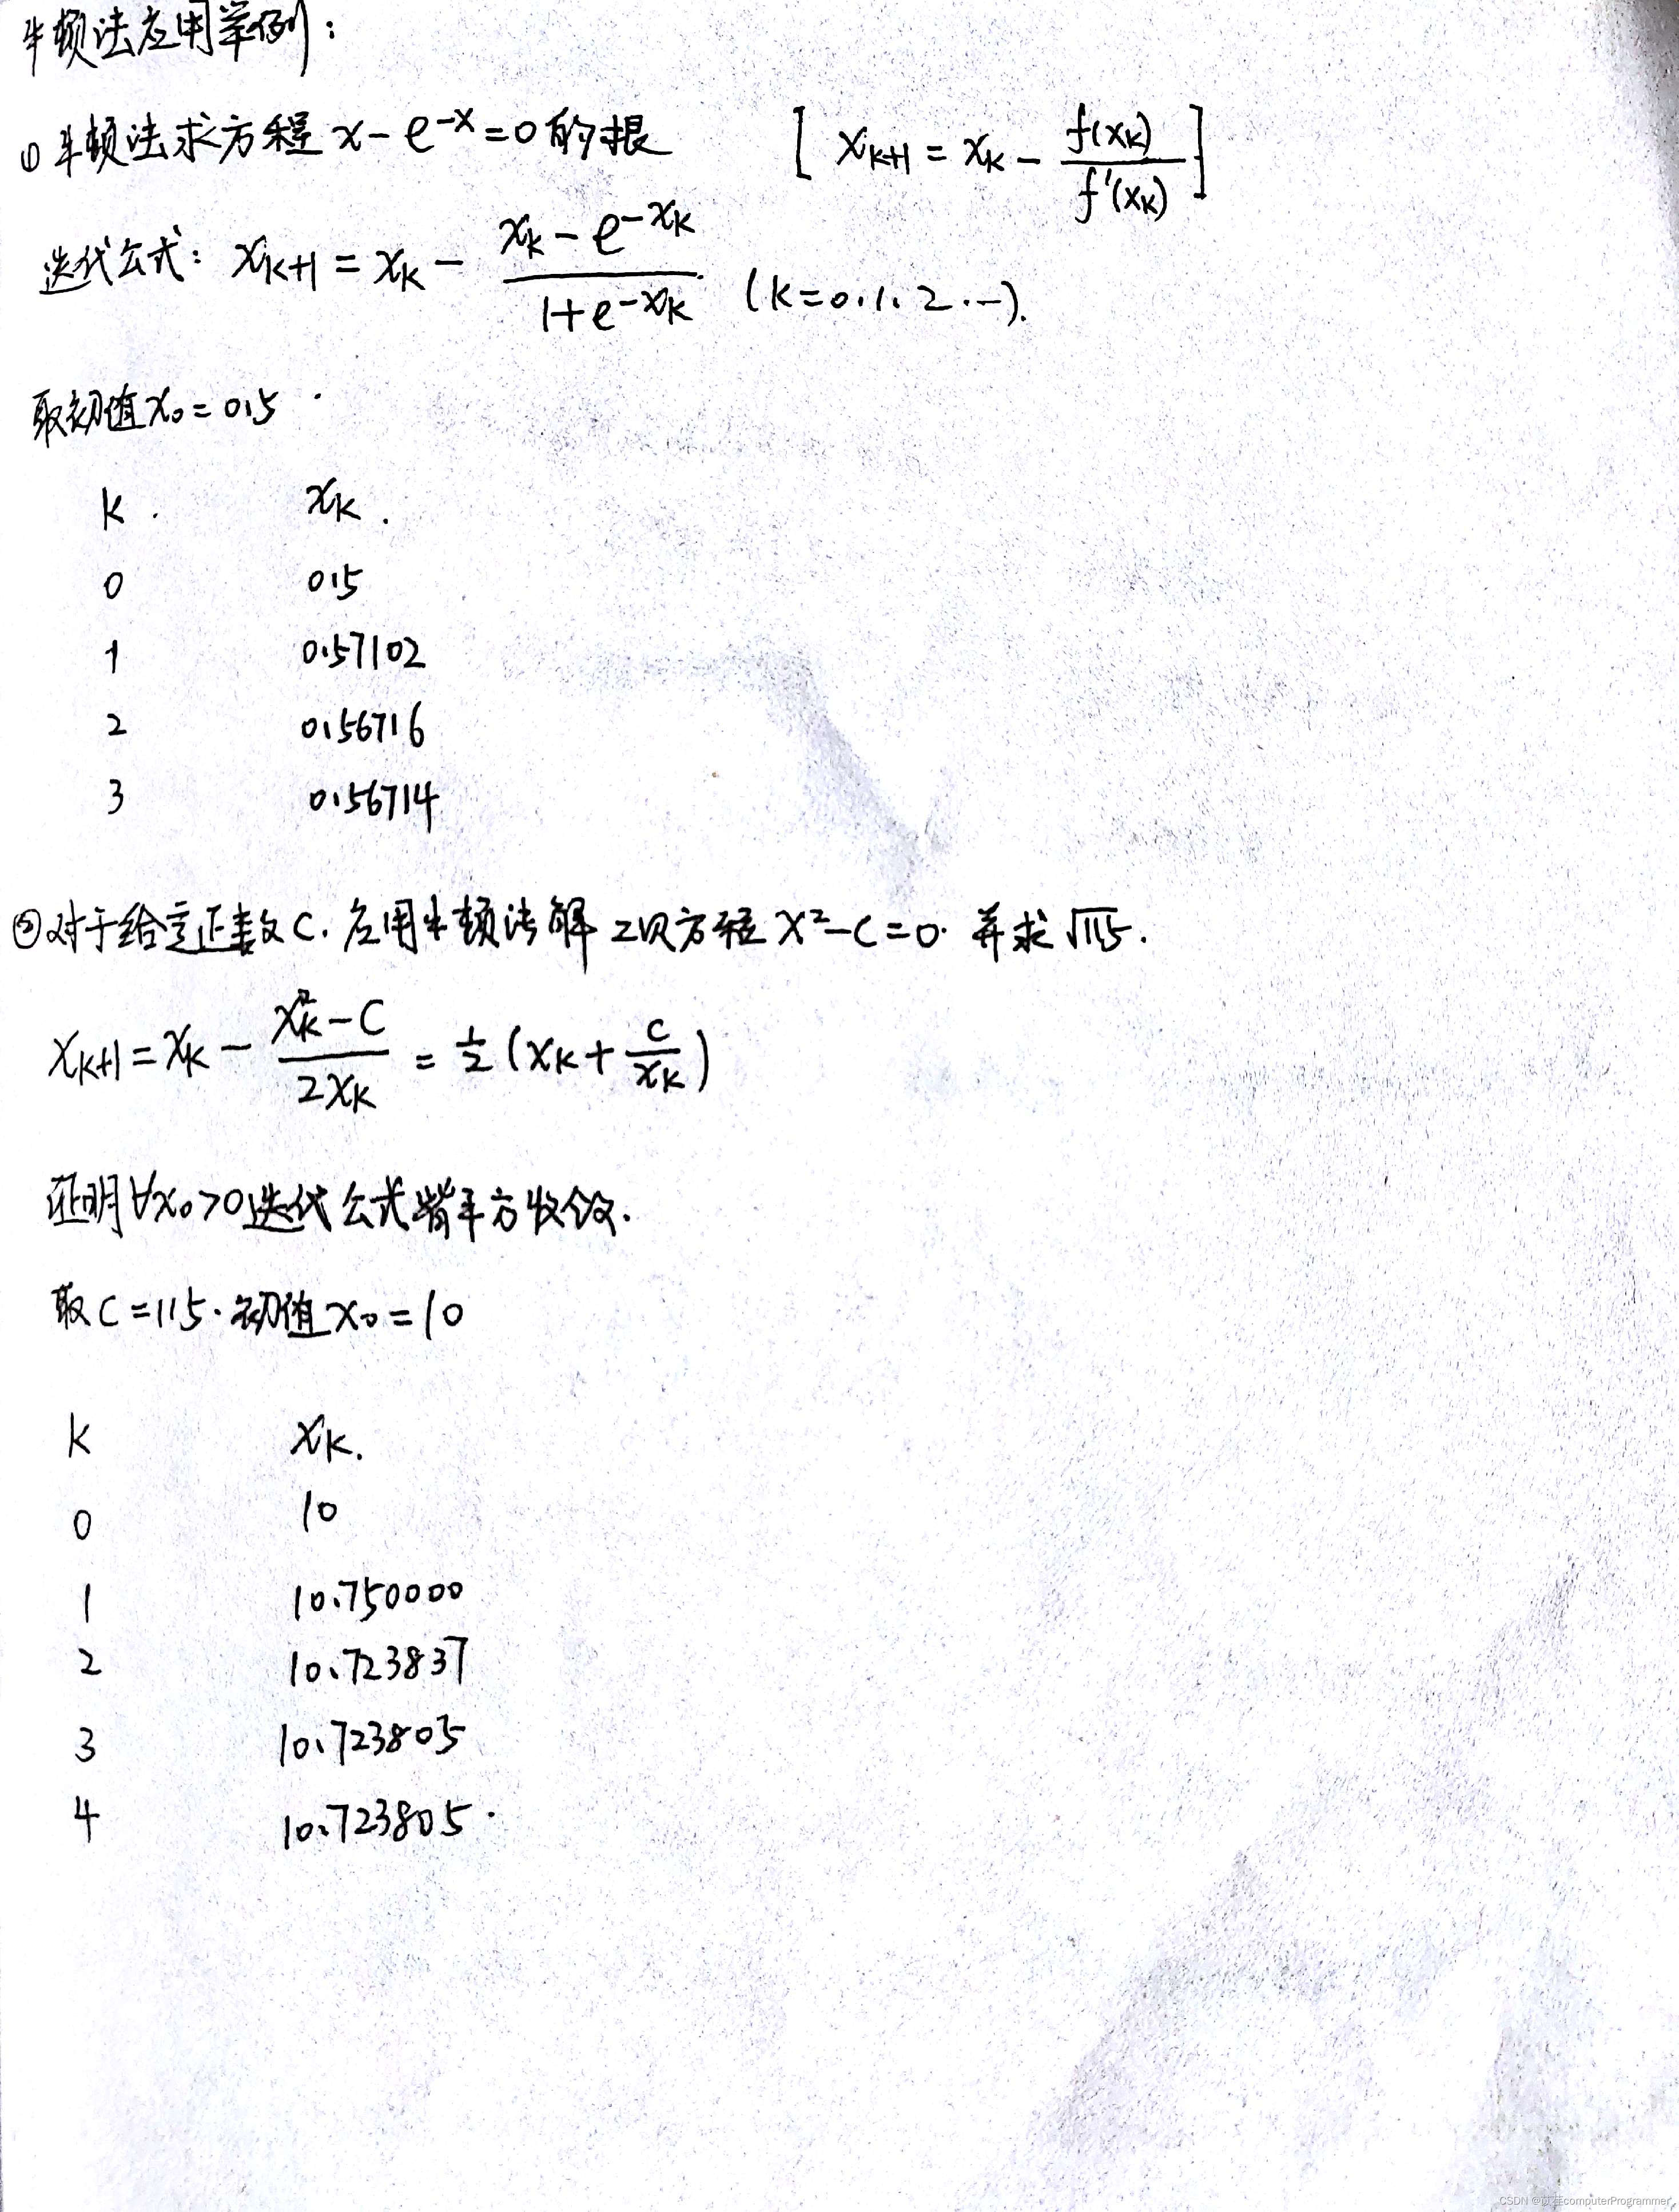 牛顿法应用举例：
① 牛顿法求方程 x - e^{-x} = 0 的根 [ x_{k+1} = x_k - \frac{f(x_k)}{f'(x_k)} ]
迭代公式：x_{k+1} = x_k - \frac{x_k - e^{-x_k}}{1 + e^{-x_k}} (k=0,1,2…).
取初值 x_0 = 0.5
k x_k
0 0.5
1 0.57102
2 0.56716
3 0.56714
② 对于给定正数C. 应用牛顿法解 2次方程 x² - C = 0. 并求 √115.
x_{k+1} = x_k - \frac{x_k^2 - C}{2x_k} = \frac{1}{2} (x_k + \frac{C}{x_k})
证明 ∀x_0 > 0 迭代公式皆平方收敛.
取 C = 115. 初值 x_0 = 10
k x_k.
0 10
1 10.750000
2 10.723837
3 10.723805
4 10.723805.
computerProgrammer